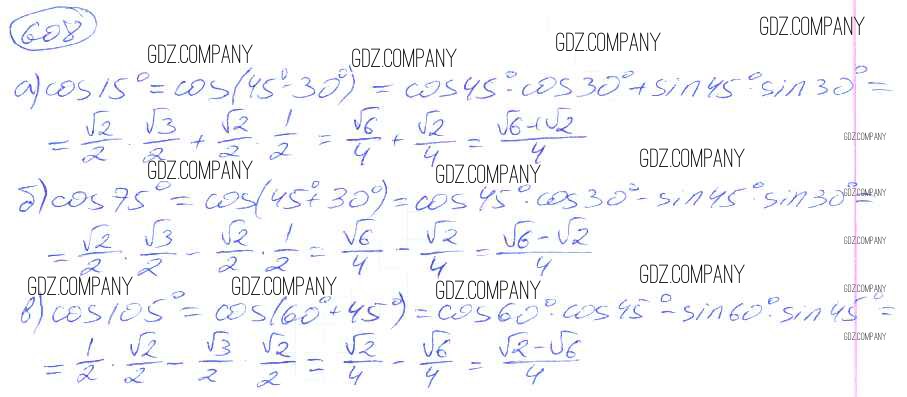 608
GDZ.COMPANY GDZ.COMPANY GDZ.COMPANY GDZ.COMPANY
а) cos15° = cos(45° - 30°) = cos45° · cos30° + sin45° · sin30° =
= √2/2 · √3/2 + √2/2 · 1/2 = √6/4 + √2/4 = (√6+√2)/4
GDZ.COMPANY
GDZ.COMPANY GDZ.COMPANY GDZ.COMPANY
б) cos75° = cos(45° + 30°) = cos45° · cos30° - sin45° · sin30° =
GDZ.COMPANY
= √2/2 · √3/2 - √2/2 · 1/2 = √6/4 - √2/4 = (√6-√2)/4
GDZ.COMPANY
GDZ.COMPANY GDZ.COMPANY GDZ.COMPANY GDZ.COMPANY
GDZ.COMPANY
в) cos105° = cos(60° + 45°) = cos60° · cos45° - sin60° · sin45° =
GDZ.COMPANY
= 1/2 · √2/2 - √3/2 · √2/2 = √2/4 - √6/4 = (√2-√6)/4